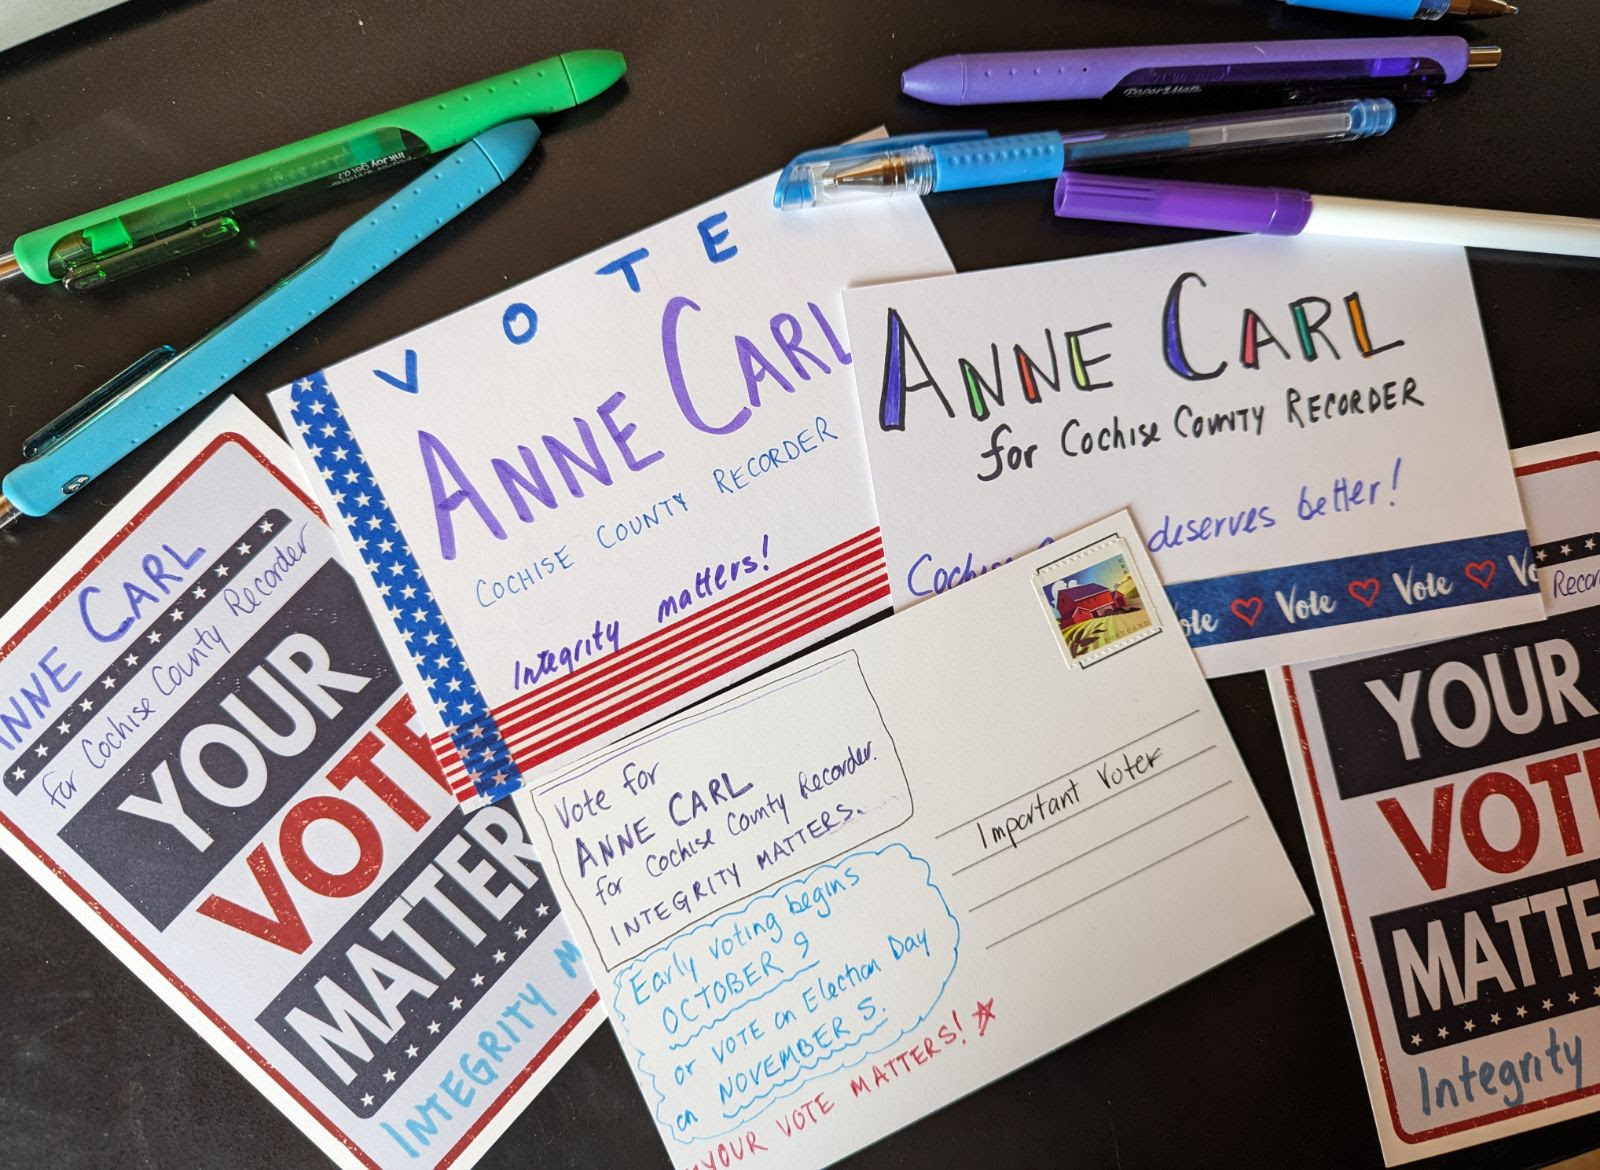 Paper Mate
InkJoy gel 0.7
VOTE
ANNE CARL
COCHISE COUNTY RECORDER
Integrity matters!
ANNE CARL
for Cochise County RECORDER
deserves better!
Vote Vote
NNE CARL
for Cochise County Recorder
YOUR
VOTE
MATTER
INTEGRITY M
Vote for
ANNE CARL
for Cochise County Recorder.
INTEGRITY MATTERS.
Early voting begins
OCTOBER 9
or VOTE on Election Day
on NOVEMBER 5.
YOUR VOTE MATTERS!
Important Voter
POSTCARD
Recor
YOUR
VOTE
MATTE
Integrity